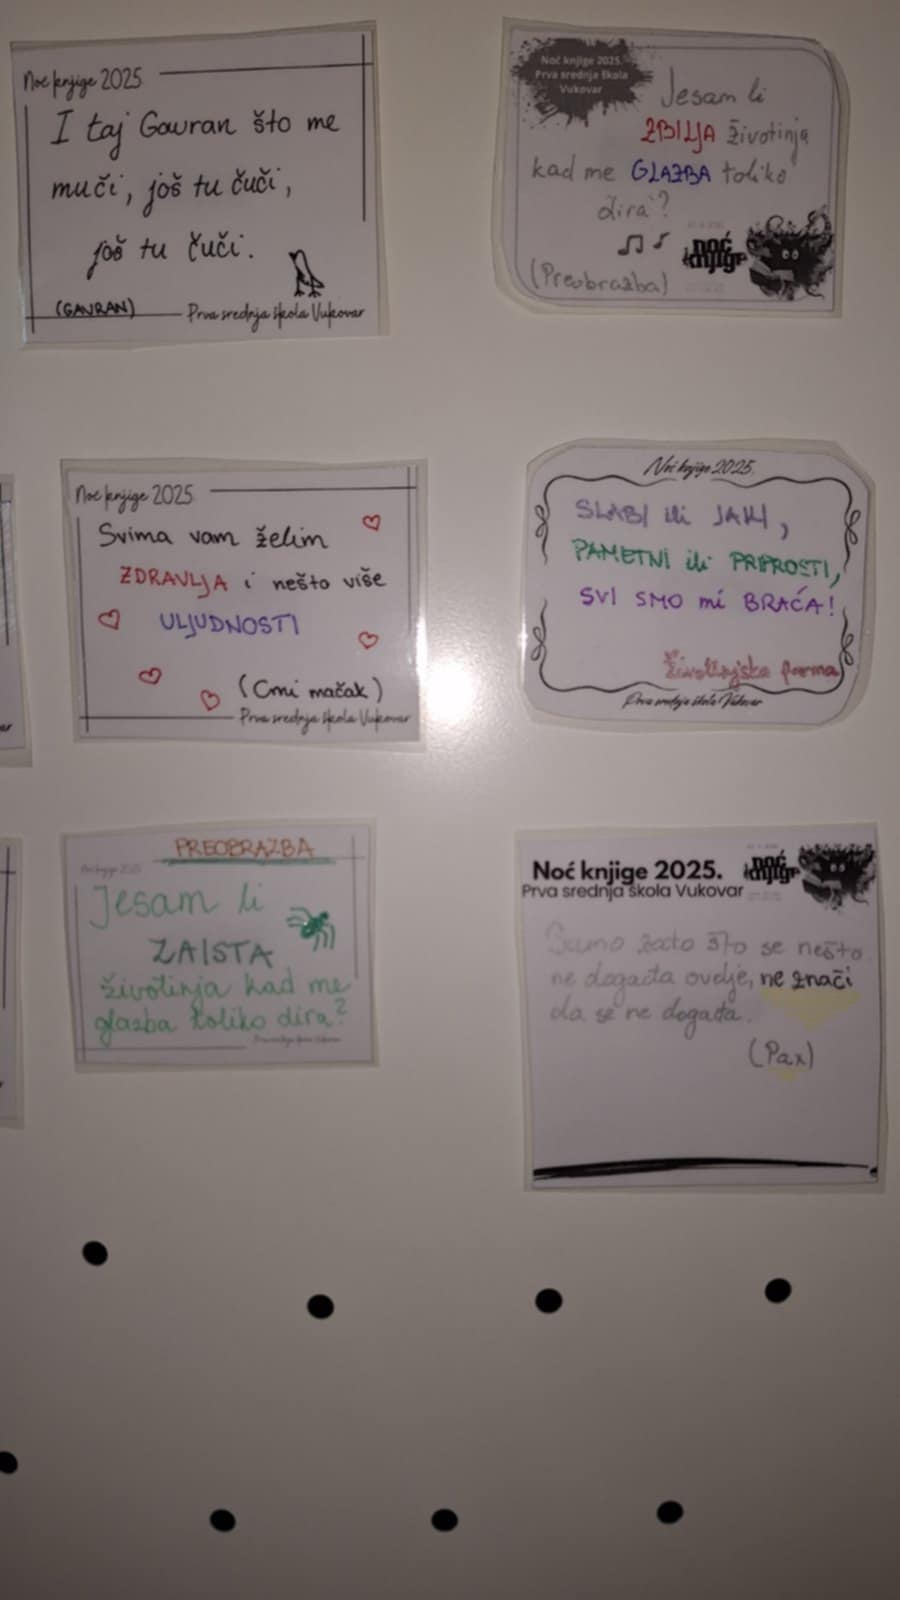 Noć knjige 2025.
I taj Gavran što me
muči, još tu čuči,
još tu čuči.
(GAVRAN)
Prva srednja škola Vukovar
Noć knjige 2025.
Prva srednja škola
Vukovar
Jesam li
ZBILJA životinja
kad me GLAZBA toliko
dira?
(Preobrazba)
noć
knjige
Noć knjige 2025.
Svima vam želim
ZDRAVLJA i nešto više
ULJUDNOSTI
(Crni mačak)
Prva srednja škola Vukovar
Noć knjige 2025.
SLABI ili JAKI,
PAMETNI ili PRIPROSTI,
SVI SMO mi BRAĆA!
Životinjska farma
Prva srednja škola Vukovar
PREOBRAZBA
Noć knjige 2025.
Jesam li
ZAISTA
životinja kad me
glazba toliko dira?
Prva srednja škola Vukovar
Noć knjige 2025.
Prva srednja škola Vukovar
noć
knjige
Samo zato što se nešto
ne događa ovdje, ne znači
da se ne događa.
(Pax)